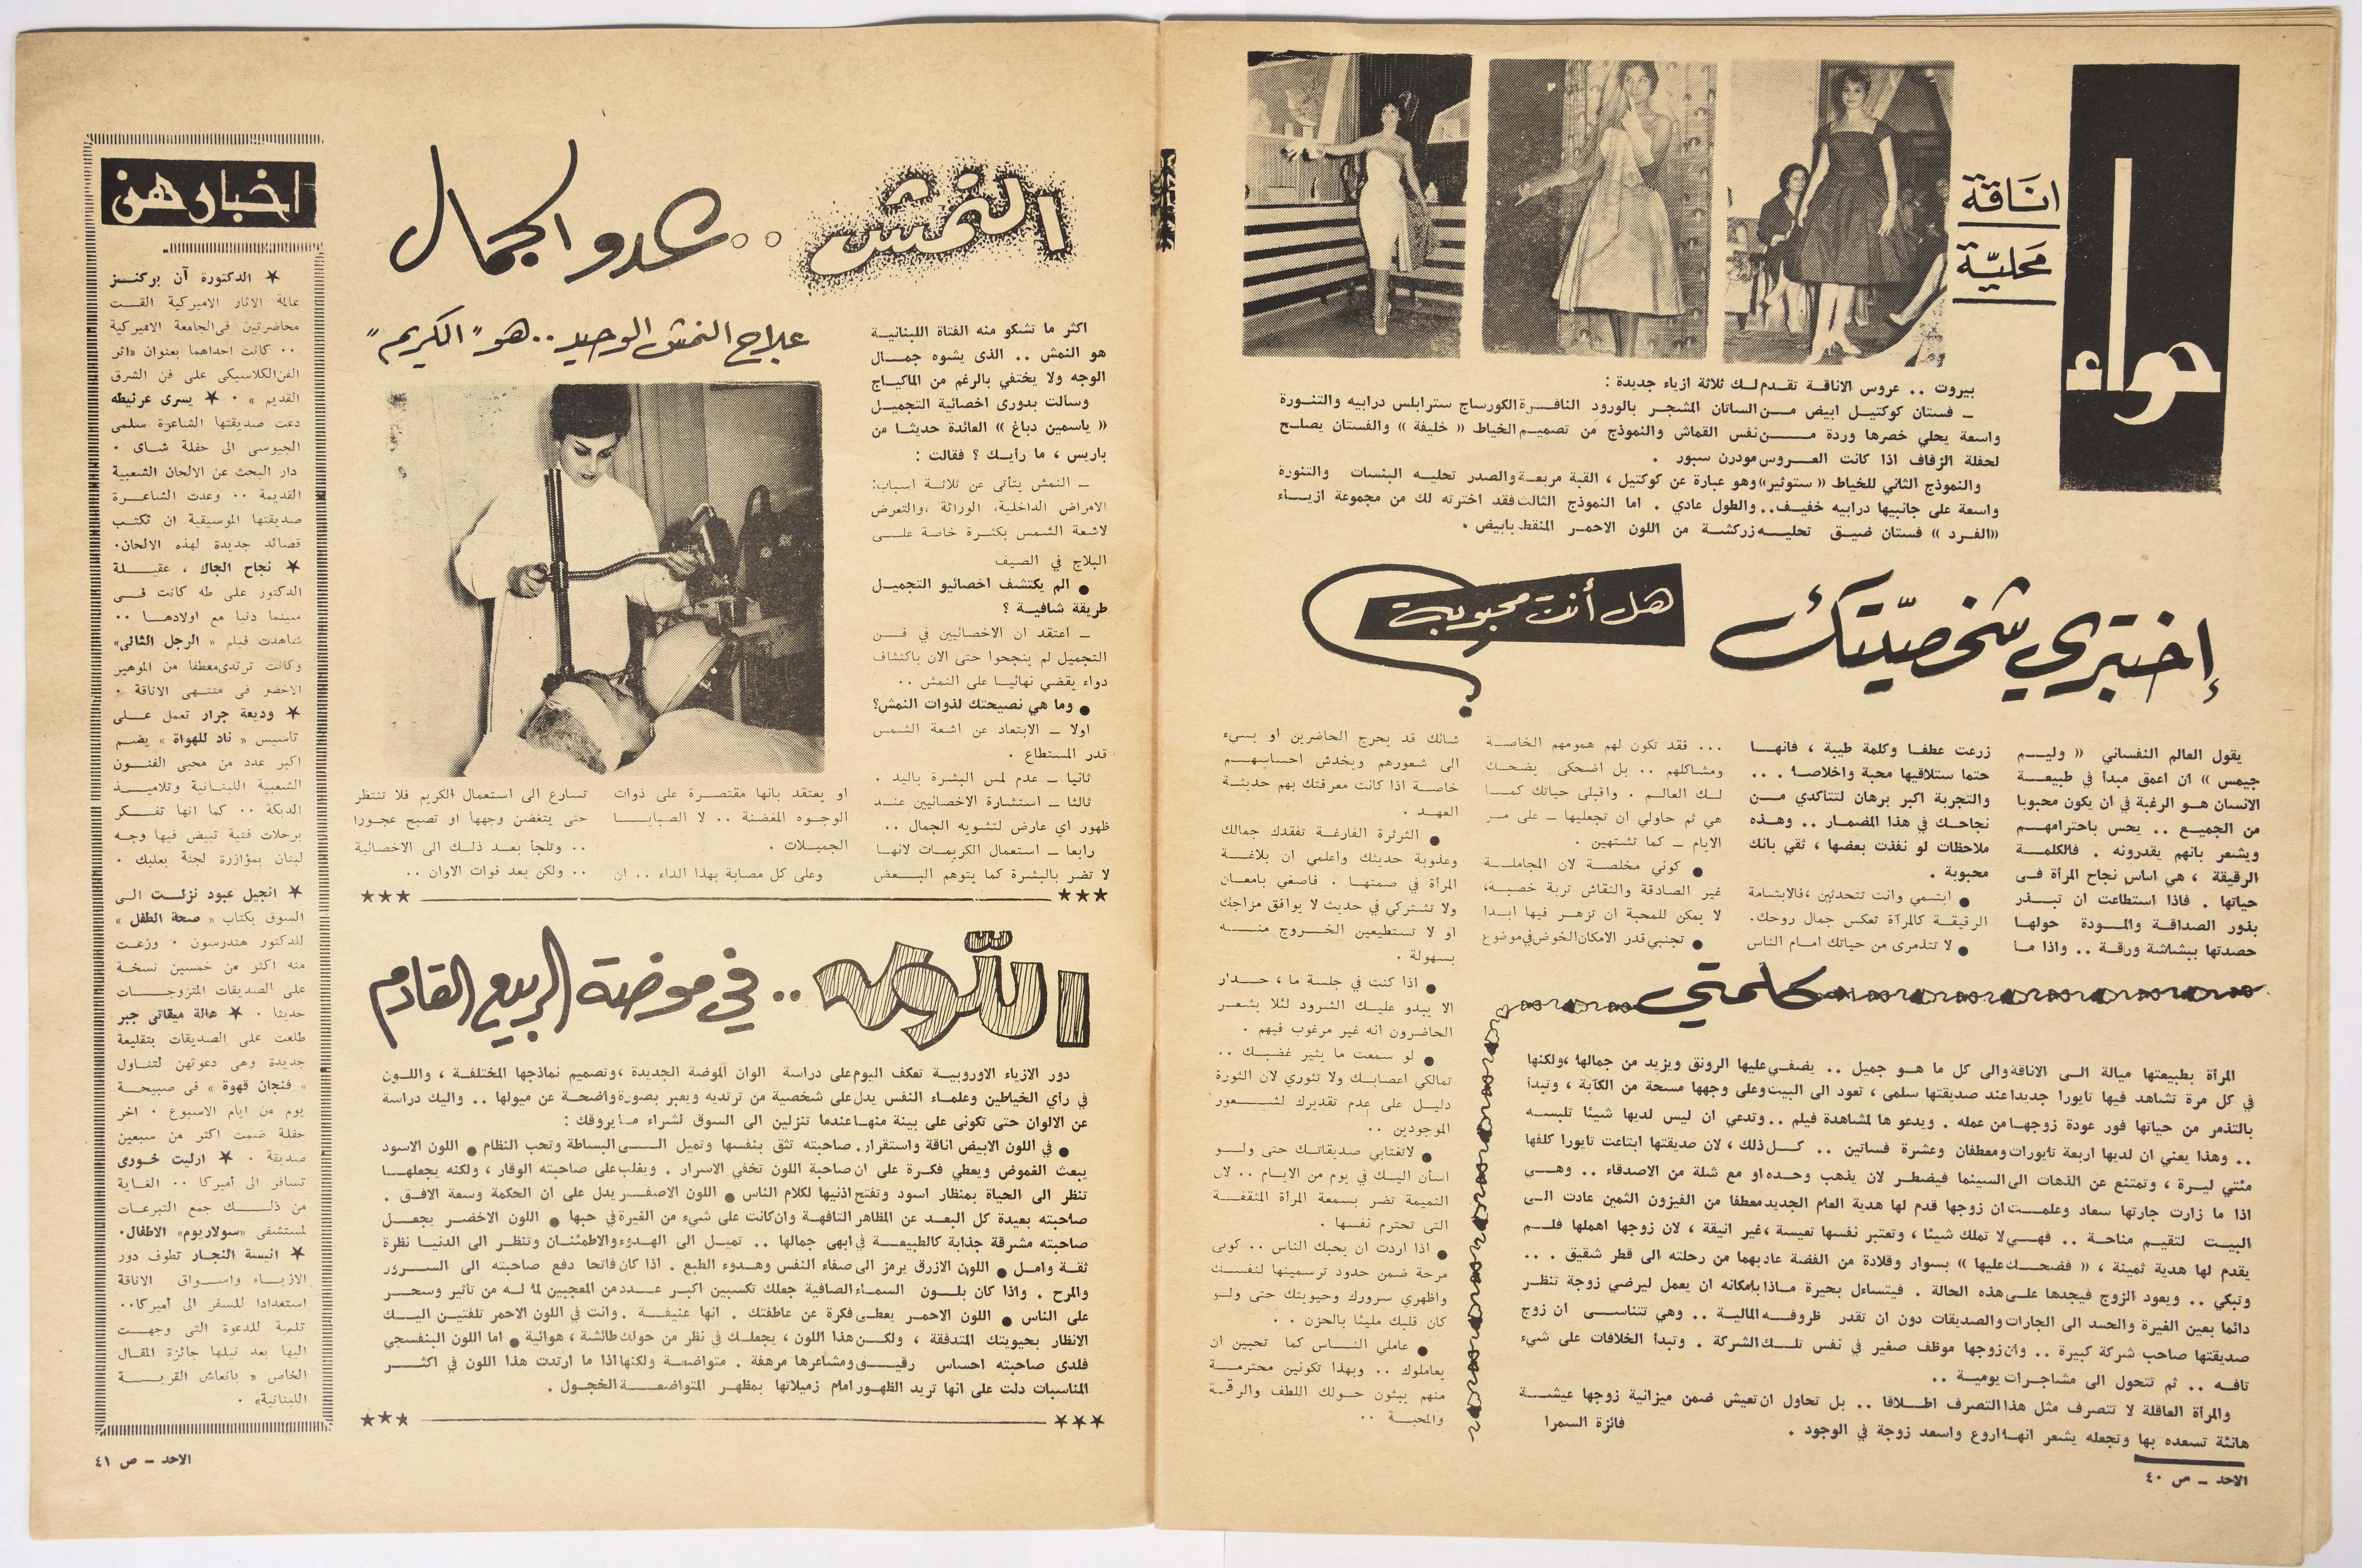 حواء
اناقة
محلية
بيروت .. عروس الاناقة تقدم لك ثلاثة ازياء جديدة :
ـ فستان كوكتيل ابيض من الساتان المشجر بالورود النافرة الكورساج سترابلس درابيه والتنورة
واسعة يحلي خصرها وردة من نفس القماش والنموذج من تصميم الخياط « خليفة » والفستان يصلح
لحفلة الزفاف اذا كانت العروس مودرن سبور .
والنموذج الثاني للخياط « ستوتير» وهو عبارة عن كوكتيل ، القبة مربعة والصدر تحليه البنسات والتنورة
واسعة على جانبيها درابيه خفيف .. والطول عادي . اما النموذج الثالث فقد اخترته لك من مجموعة ازياء
«الفرد » فستان ضيق تحليه زركشة من اللون الاحمر المنقط بابيض .
إختبري شخصيّتك
هل أنت محبوبة ؟
يقول العالم النفساني « وليم
جيمس » ان اعمق مبدأ في طبيعة
الانسان هو الرغبة في ان يكون محبوبا
من الجميع .. يحس باحترامهم
ويشعر بانهم يقدرونه . فالكلمة
الرقيقة ، هي اساس نجاح المرأة في
حياتها . فاذا استطاعت ان تبذر
بذور الصداقة والمودة حولها
حصدتها ببشاشة ورقة .. واذا ما
زرعت عطفا وكلمة طيبة ، فانها
حتما ستلاقيها محبة واخلاصا . ..
والتجربة اكبر برهان لتتأكدي من
نجاحك في هذا المضمار .. وهذه
ملاحظات لو نفذت بعضها ، ثقي بانك
محبوبة .
● ابتسمي وانت تتحدثين ، فالابتسامة
الرقيقة كالمرآة تعكس جمال روحك .
● لا تتذمرى من حياتك امام الناس
... فقد تكون لهم همومهم الخاصة
ومشاكلهم .. بل اضحكى يضحك
لك العالم . واقبلى حياتك كما
هي ثم حاولي ان تجعليها ـ على مر
الايام ـ كما تشتهين .
● كوني مخلصة لان المجاملة
غير الصادقة والنقاش تربة خصبة ،
لا يمكن للمحبة ان تزهر فيها ابدا
● تجنبي قدر الامكان الخوض في موضوع
شائك قد يحرج الحاضرين او يسيء
الى شعورهم ويخدش احساسهم
خاصة اذا كانت معرفتك بهم حديثة
العهد .
● الثرثرة الفارغة تفقدك جمالك
وعذوبة حديثك واعلمي ان بلاغة
المرأة في صمتها . فاصغي بامعان
ولا تشتركي في حديث لا يوافق مزاجك
او لا تستطيعين الخروج منه
بسهولة .
● اذا كنت في جلسة ما ، حذار
الا يبدو عليك الشرود لئلا يشعر
الحاضرون انه غير مرغوب فيهم .
● لو سمعت ما يثير غضبك ..
تمالكي اعصابك ولا تثوري لان الثورة
دليل على عدم تقديرك لشعور
الموجودين ..
● لاتغتابي صديقاتك حتى ولو
اسأن اليك في يوم من الايام .. لان
النميمة تضر بسمعة المرأة المثقفة
التى تحترم نفسها .
● اذا اردت ان يحبك الناس .. كونى
مرحة ضمن حدود ترسمينها لنفسك
واظهري سرورك وحيويتك حتى ولو
كان قلبك مليئا بالحزن . .
● عاملي الناس كما تحبين ان
يعاملوك .. وبهذا تكونين محترمة
منهم يبثون حولك اللطف والرقة
والمحبة ..
كلمتي
المرأة بطبيعتها ميالة الى الاناقة والى كل ما هو جميل .. يضفي عليها الرونق ويزيد من جمالها ، ولكنها
في كل مرة تشاهد فيها تايورا جديدا عند صديقتها سلمى ، تعود الى البيت وعلى وجهها مسحة من الكآبة ، وتبدأ
بالتذمر من حياتها فور عودة زوجها من عمله . ويدعو ها لمشاهدة فيلم .. وتدعي ان ليس لديها شيئا تلبسه
.. وهذا يعني ان لديها اربعة تايورات ومعطفان وعشرة فساتين .. كل ذلك ، لان صديقتها ابتاعت تايورا كلفها
مئتي ليرة ، وتمتنع عن الذهات الى السينما فيضطر لان يذهب وحده او مع شلة من الاصدقاء .. وهي
اذا ما زارت جارتها سعاد وعلمت ان زوجها قدم لها هدية العام الجديد معطفا من الفيزون الثمين عادت الى
البيت لتقيم مناحة .. فهي لا تملك شيئا ، وتعتبر نفسها تعيسة ، غير انيقة ، لان زوجها اهملها فلم
يقدم لها هدية ثمينة ، « فضحك عليها » بسوار وقلادة من الفضة عاد بهما من رحلته الى قطر شقيق . ..
وتبكي .. ويعود الزوج فيجدها على هذه الحالة . فيتساءل بحيرة ماذا بامكانه ان يعمل ليرضي زوجة تنظر
دائما بعين الغيرة والحسد الى الجارات والصديقات دون ان تقدر ظروفه المالية .. وهي تتناسى ان زوج
صديقتها صاحب شركة كبيرة .. وان زوجها موظف صغير في نفس تلك الشركة . وتبدأ الخلافات على شيء
تافه .. ثم تتحول الى مشاجرات يومية ..
والمرأة العاقلة لا تتصرف مثل هذا التصرف اطلاقا .. بل تحاول ان تعيش ضمن ميزانية زوجها عيشة
هانئة تسعده بها وتجعله يشعر انها اروع واسعد زوجة في الوجود .
فائزة السمرا
الاحد ـ ص ٤٠
النمش .. شدو الجمال
علاج النمش الوحيد .. هو "الكريم"
اكثر ما تشكو منه الفتاة اللبنانية
هو النمش .. الذى يشوه جمال
الوجه ولا يختفي بالرغم من الماكياج
وسألت بدورى اخصائية التجميل
« ياسمين دباغ » العائدة حديثا من
باريس ، ما رأيك ؟ فقالت :
ـ النمش يتأتى عن ثلاثة اسباب :
الامراض الداخلية، الوراثة ، والتعرض
لاشعة الشمس بكثرة خاصة على
البلاج في الصيف
● الم يكتشف اخصائيو التجميل
طريقة شافية ؟
ـ اعتقد ان الاخصائيين في فن
التجميل لم ينجحوا حتى الان باكتشاف
دواء يقضي نهائيا على النمش ..
● وما هي نصيحتك لذوات النمش؟
اولا ـ الابتعاد عن اشعة الشمس
قدر المستطاع .
ثانيا ـ عدم لمس البشرة باليد .
ثالثا ـ استشارة الاخصائيين عند
ظهور اي عارض لتشويه الجمال ..
رابعا ـ استعمال الكريمات لانها
لا تضر بالبشرة كما يتوهم البعض
او يعتقد بانها مقتصرة على ذوات
الوجوه المغضنة .. لا الصبايا
الجميلات .
وعلى كل مصابة بهذا الداء .. ان
تسارع الى استعمال الكريم فلا تنتظر
حتى يتغضن وجهها او تصبح عجوزا
.. وتلجأ بعد ذلك الى الاخصائية
.. ولكن بعد فوات الاوان ..
اللّون .. في موضة الربيع القادم
دور الازياء الاوروبية تعكف اليوم على دراسة الوان الموضة الجديدة ، وتصميم نماذجها المختلفة ، واللون
في رأي الخياطين وعلماء النفس يدل على شخصية من ترتديه ويعبر بصورة واضحة عن ميولها .. واليك دراسة
عن الالوان حتى تكونى على بينة منها عندما تنزلين الى السوق لشراء ما يروقك :
● في اللون الابيض اناقة واستقرار . صاحبته تثق بنفسها وتميل الى البساطة وتحب النظام ● اللون الاسود
يبعث الغموض ويعطي فكرة على ان صاحبة اللون تخفي الاسرار . ويغلب على صاحبته الوقار ، ولكنه يجعلها
تنظر الى الحياة بمنظار اسود وتفتح اذنيها لكلام الناس ● اللون الاصفر يدل على ان الحكمة وسعة الافق .
صاحبته بعيدة كل البعد عن المظاهر التافهة وان كانت على شيء من الغيرة في حبها ● اللون الاخضر يجعل
صاحبته مشرقة جذابة كالطبيعة في ابهى جمالها .. تميل الى الهدوء والاطمئنان وتنظر الى الدنيا نظرة
ثقة وامل ● اللون الازرق يرمز الى صفاء النفس وهدوء الطبع . اذا كان فاتحا دفع صاحبته الى السرور
والمرح . واذا كان بلون السماء الصافية جعلك تكسبين اكبر عدد من المعجبين لما له من تأثير وسحر
على الناس ● اللون الاحمر يعطي فكرة عن عاطفتك . انها عنيفة . وانت في اللون الاحمر تلفتين اليك
الانظار بحيويتك المتدفقة ، ولكن هذا اللون ، يجعلك في نظر من حولك طائشة ، هوائية ● اما اللون البنفسجي
فلدى صاحبته احساس رقيق ومشاعرها مرهفة . متواضعة ولكنها اذا ما ارتدت هذا اللون في اكثر
المناسبات دلت على انها تريد الظهور امام زميلاتها بمظهر المتواضعة الخجول .
اخبارهن
★ الدكتورة آن بركنز
عالمة الاثار الاميركية القت
محاضرتين في الجامعة الاميركية
.. كانت احداهما بعنوان «اثر
الفن الكلاسيكي على فن الشرق
القديم » . ★ يسرى عرنيطه
دعت صديقتها الشاعرة سلمى
الجيوسى الى حفلة شاى .
دار البحث عن الالحان الشعبية
القديمة .. وعدت الشاعرة
صديقتها الموسيقية ان تكتب
قصائد جديدة لهذه الالحان .
★ نجاح الجاك ، عقيلة
الدكتور على طه كانت في
سينما دنيا مع اولادها ..
شاهدت فيلم « الرجل الثانى»
وكانت ترتدى معطفا من الموهير
الاخضر في منتهى الاناقة .
★ وديعة جرار تعمل على
تأسيس « ناد للهواة » يضم
اكبر عدد من محبى الفنون
الشعبية اللبنانية وتلاميذ
الدبكة .. كما انها تفكر
برحلات فنية تبيض فيها وجه
لبنان بمؤازرة لجنة بعلبك .
★ انجيل عبود نزلت الى
السوق بكتاب « صحة الطفل »
للدكتور هندرسون . وزعت
منه اكثر من خمسين نسخة
على الصديقات المتزوجات
حديثا . ★ هالة ميقاتى جبر
طلعت على الصديقات بتقليعة
جديدة وهى دعوتهن لتناول
« فنجان قهوة » في صبيحة
يوم من ايام الاسبوع . اخر
حفلة ضمت اكثر من سبعين
صديقة . ★ ارليت خورى
تسافر الى أميركا .. الغاية
من ذلك جمع التبرعات
لمستشفى «سولاريوم» الاطفال .
★ انيسة النجار تطوف دور
الازياء واسواق الاناقة
استعدادا للسفر الى أميركا ..
تلبية للدعوة التى وجهت
اليها بعد نيلها جائزة المقال
الخاص « بانعاش القرية
اللبنانية» .
الاحد ـ ص ٤١